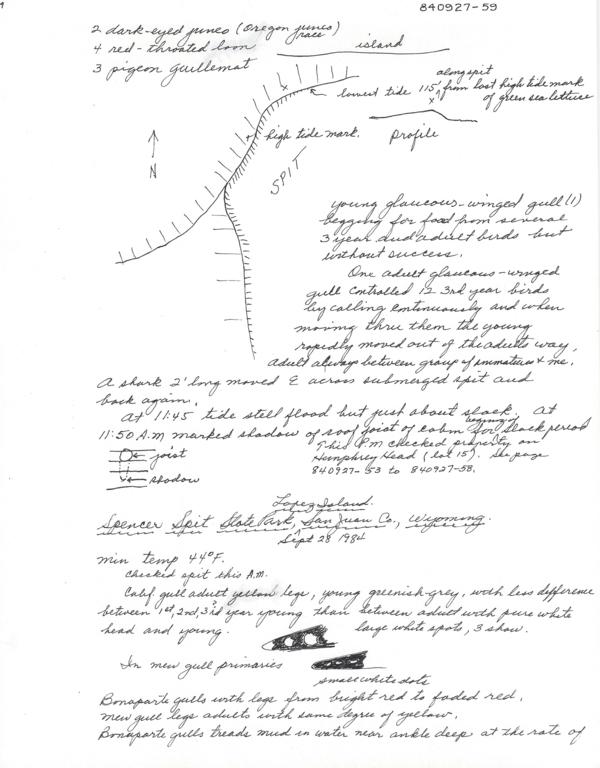 840927-59
2 dark-eyed junco (Oregon junco race
4 red-throated loon
3 pigeon guillemat
island
lowest tide
along spit
115' from last high tide mark
of green sea lettuce
x
x
x
high tide mark.
profile
N
SPIT
young glaucous-winged gull (1)
begging for food from several
3 year and adult birds but
without success.
One adult glaucous-winged
gull controlled 12 3rd year birds
by calling continuously and when
moving thru them the young
rapidly moved out of the adults way,
adult always between group of immatures & me.
A shark 2' long moved E across submerged spit and
back again.
At 11:45 tide still flood but just about slack. At
11:50 A.M marked shadow of roof joist of cabin for begging of slack period
This P.M checked property on
Humphrey Head (lot 15). See page
840927-53 to 840927-58.
joist
shadow
Lopez Island.
Spencer Spit State Park, San Juan Co., Wyoming.
Sept 28 1984
min temp 44°F.
Checked spit this A.M.
Calif gull adult yellow legs, young greenish-grey, with less difference
between 1st, 2nd, 3rd year young than between adult with pure white
head and young.
large white spots, 3 show.
In mew gull primaries
small white dots
Bonaparte gulls with legs from bright red to faded red.
mew gull legs adults with same degree of yellow.
Bonaparte gulls treads mud in water near ankle deep at the rate of